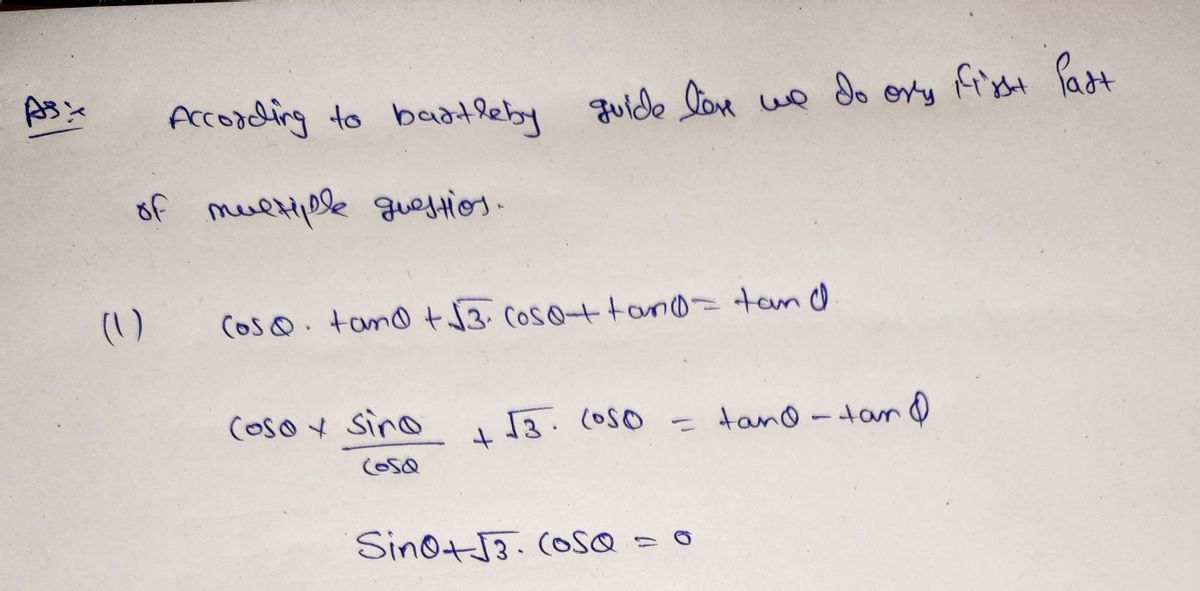 As:- According to bartleby guide line we do only first Part
of multiple questios.
(1) cosθ. tanθ + √3. cosθ + tanθ = tanθ
cosθ × sinθ/cosθ + √3. cosθ = tanθ - tanθ
Sinθ + √3. cosθ = 0